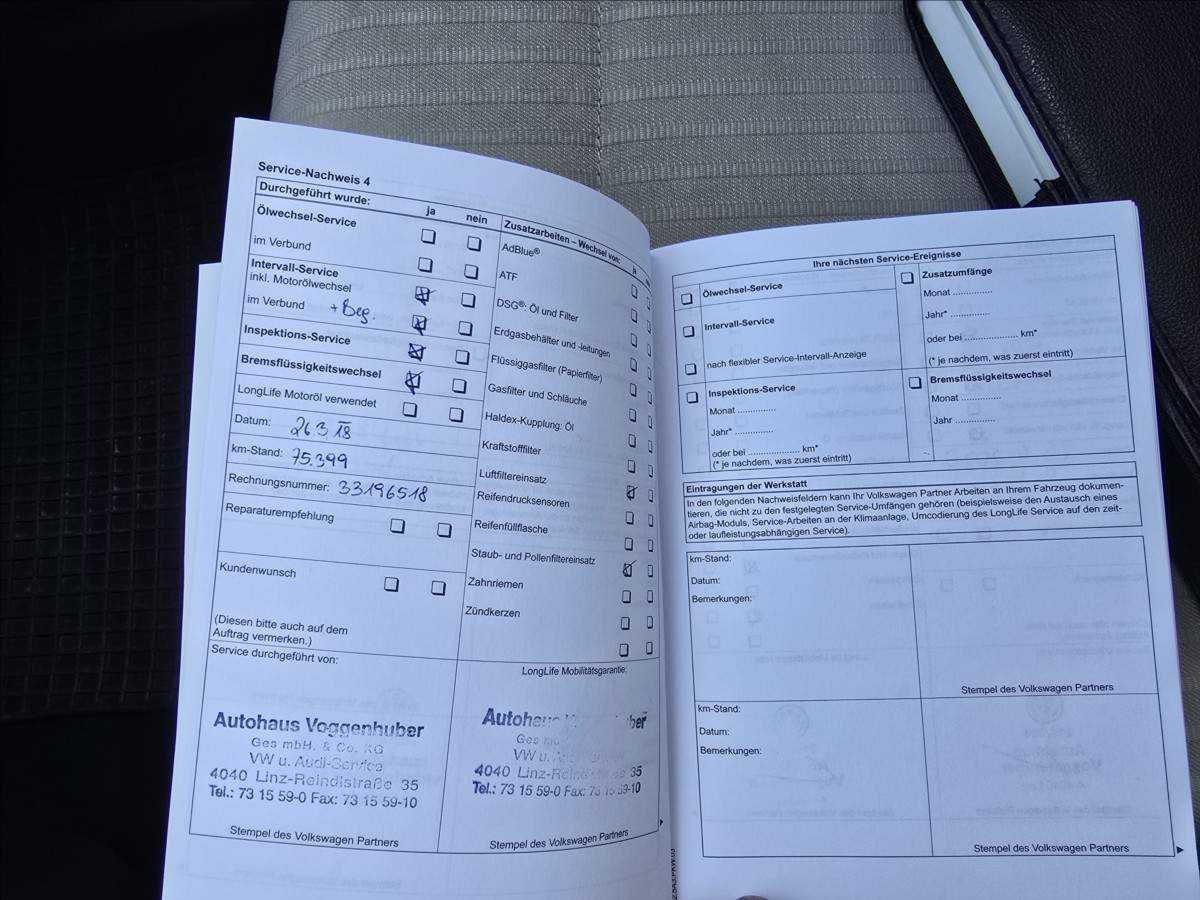 Service-Nachweis 4
Durchgeführt wurde: ja nein
Ölwechsel-Service
im Verbund
Intervall-Service
inkl. Motorölwechsel
im Verbund + Beg.
Inspektions-Service
Bremsflüssigkeitswechsel
LongLife Motoröl verwendet
Datum: 26.3.18
km-Stand: 75.399
Rechnungsnummer: 33196518
Reparaturempfehlung
Kundenwunsch
(Diesen bitte auch auf dem
Auftrag vermerken.)
Zusatzarbeiten – Wechsel von: ja
AdBlue®
ATF
DSG®: Öl und Filter
Erdgasbehälter und -leitungen
Flüssiggasfilter (Papierfilter)
Gasfilter und Schläuche
Haldex-Kupplung: Öl
Kraftstofffilter
Luftfiltereinsatz
Reifendrucksensoren
Reifenfüllflasche
Staub- und Pollenfiltereinsatz
Zahnriemen
Zündkerzen
Service durchgeführt von:
Autohaus Voggenhuber
Ges mbH. & Co. KG
VW u. Audi-Service
4040 Linz-Reindlstraße 35
Tel.: 73 15 59-0 Fax: 73 15 59-10
Stempel des Volkswagen Partners
LongLife Mobilitätsgarantie:
Autohaus
Ges
VW u.
4040 Linz-Reindlstraße 35
Tel.: 73 15 59-0 Fax: 73 15 59-10
Stempel des Volkswagen Partners
Ihre nächsten Service-Ereignisse
Ölwechsel-Service
Intervall-Service
nach flexibler Service-Intervall-Anzeige
Inspektions-Service
Monat ..............
Jahr* ..............
oder bei ................... km*
(* je nachdem, was zuerst eintritt)
Zusatzumfänge
Monat ..............
Jahr* ..............
oder bei ................... km*
(* je nachdem, was zuerst eintritt)
Bremsflüssigkeitswechsel
Monat ..............
Jahr ..............
Eintragungen der Werkstatt
In den folgenden Nachweisfeldern kann Ihr Volkswagen Partner Arbeiten an Ihrem Fahrzeug dokumen-
tieren, die nicht zu den festgelegten Service-Umfängen gehören (beispielsweise den Austausch eines
Airbag-Moduls, Service-Arbeiten an der Klimaanlage, Umcodierung des LongLife Service auf den zeit-
oder laufleistungsabhängigen Service).
km-Stand:
Datum:
Bemerkungen:
Stempel des Volkswagen Partners
km-Stand:
Datum:
Bemerkungen:
Stempel des Volkswagen Partners